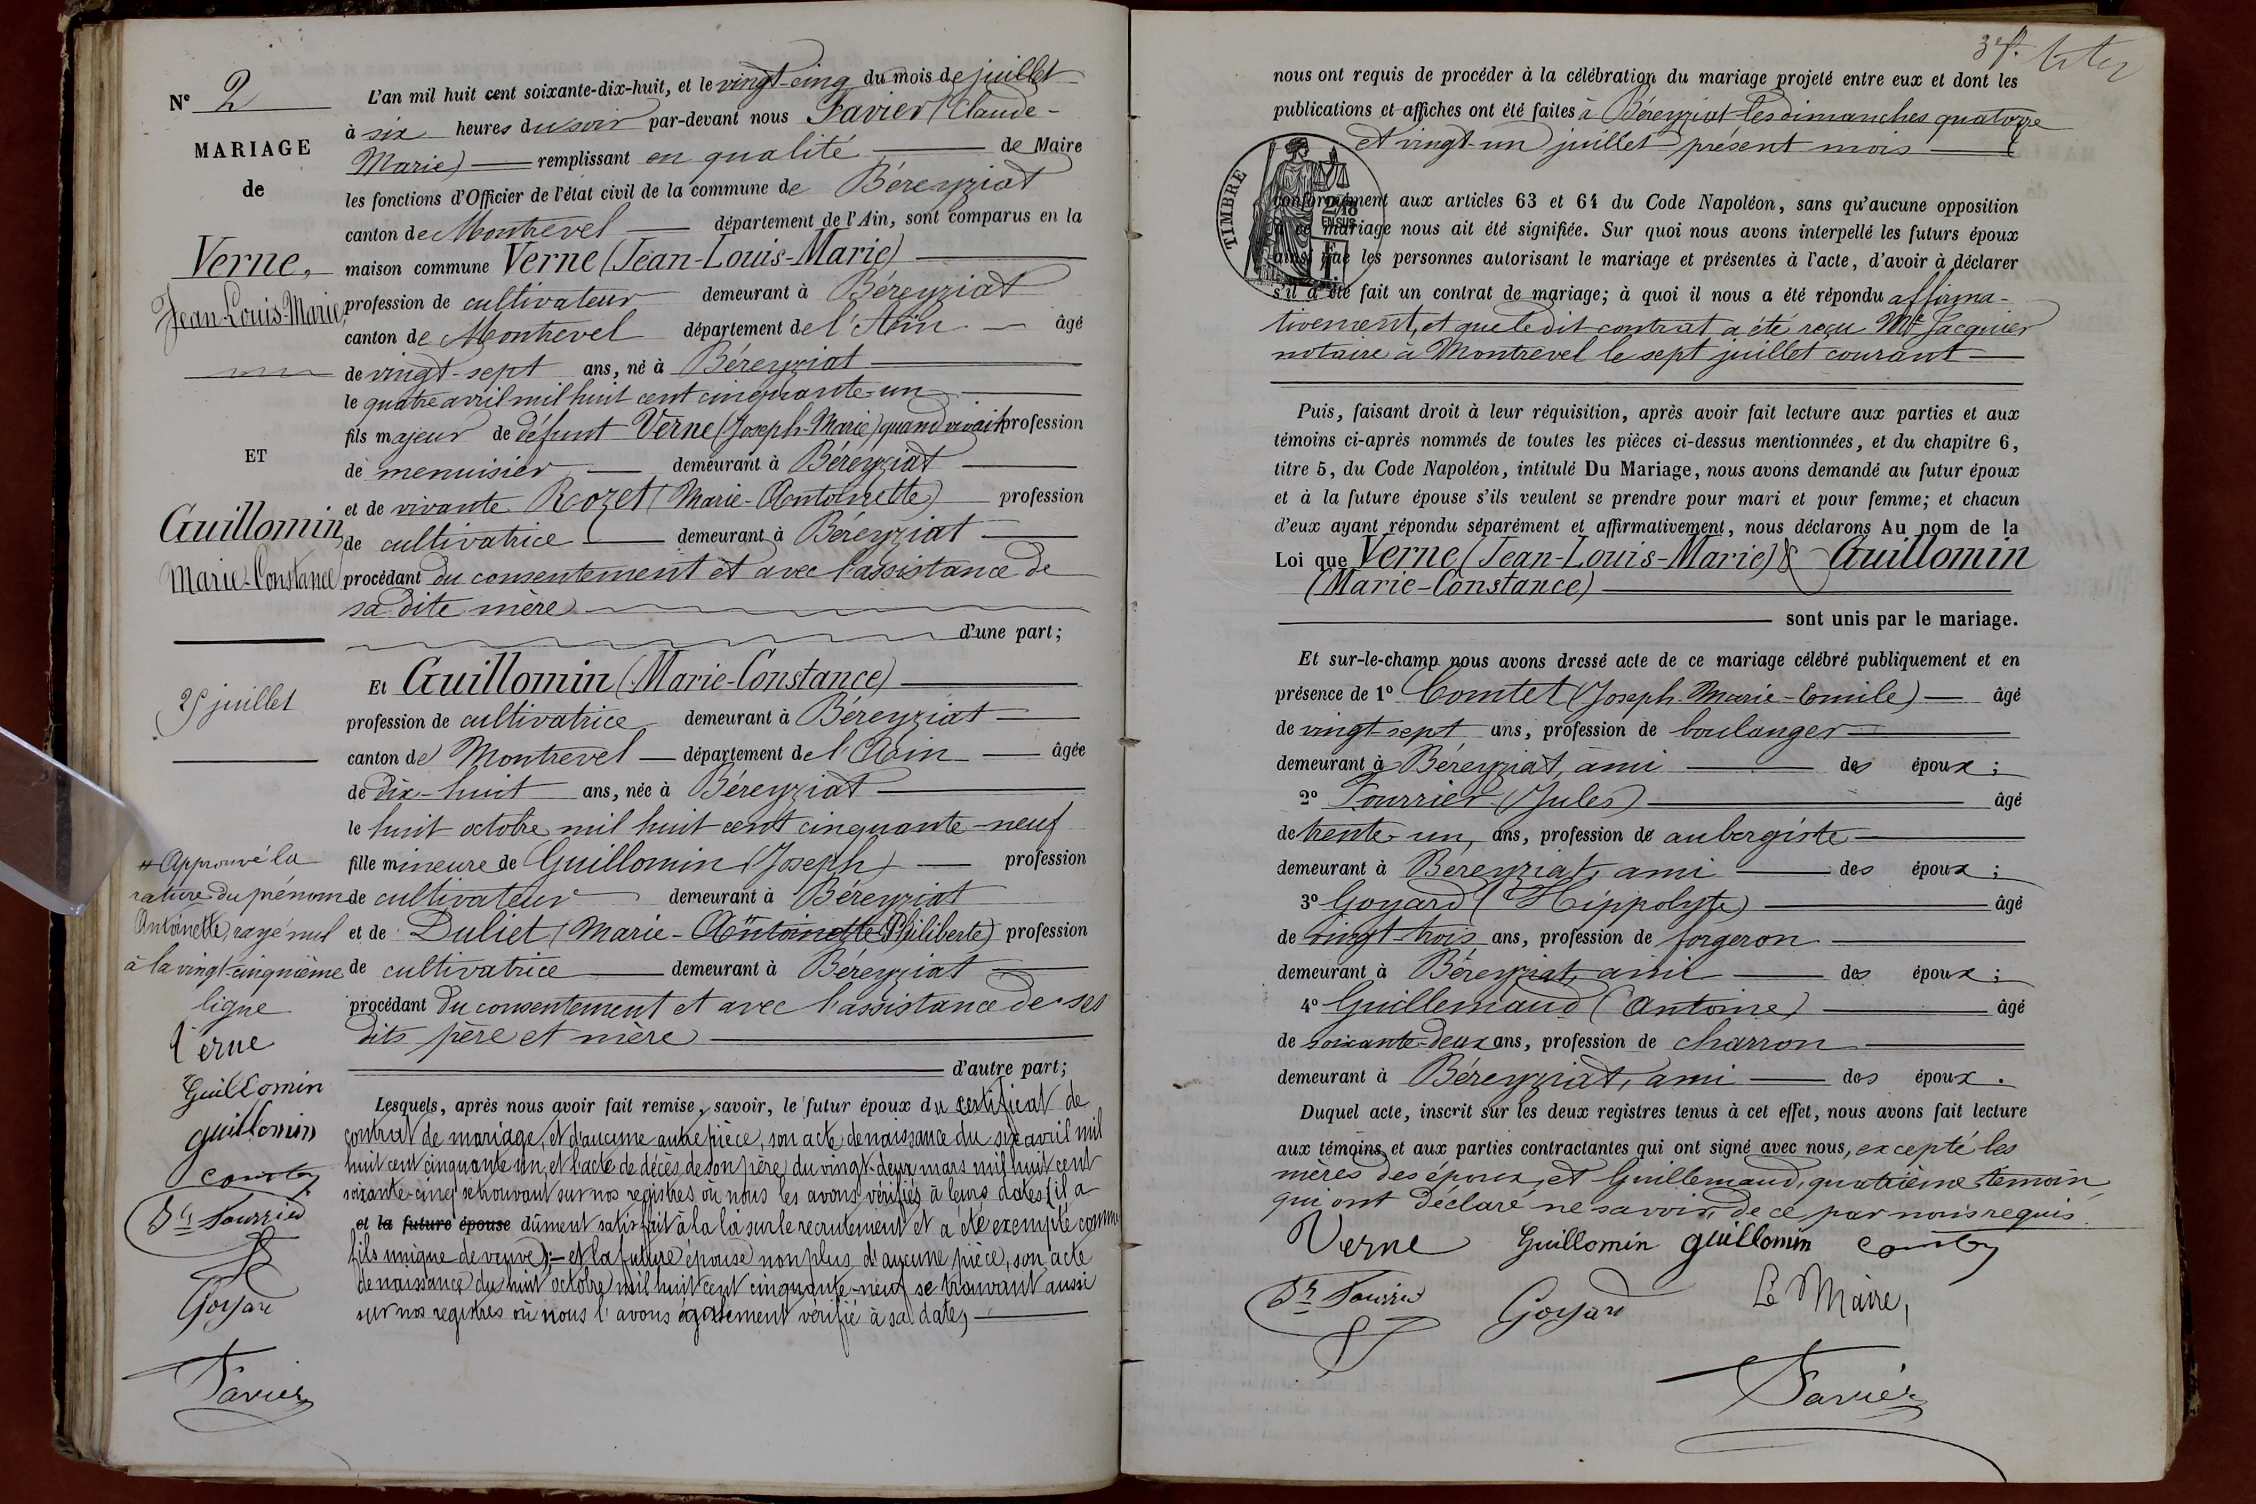 N° 2
MARIAGE
de
Verne,
Jean-Louis-Marie,
ET
Guillomin,
Marie-Constance
25 juillet
# Approuvé la
rature du prénom
Antoinette, rayé nul
à la vingt-cinquième
ligne
Verne
Guillomin
guillomin
Comtet
Jles Fourrier
Goyard
Favier
L'an mil huit cent soixante-dix-huit, et le vingt-cinq du mois de juillet
à six heures du soir par-devant nous Favier (Claude-
Marie) remplissant en qualité de Maire
les fonctions d'Officier de l'état civil de la commune de Béreyziat
canton de Montrevel département de l'Ain, sont comparus en la
maison commune Verne (Jean-Louis-Marie)
profession de cultivateur demeurant à Béreyziat
canton de Montrevel département de l'Ain âgé
de vingt-sept ans, né à Béreyziat
le quatre avril mil huit cent cinquante-un
fils majeur de défunt Verne (Joseph-Marie) quand vivait profession
de menuisier demeurant à Béreyziat
et de vivante Rozet (Marie-Antoinette) profession
de cultivatrice demeurant à Béreyziat
procédant du consentement et avec l'assistance de
sa dite mère
d'une part;
Et Guillomin (Marie-Constance)
profession de cultivatrice demeurant à Béreyziat
canton de Montrevel département de l'Ain âgée
de dix-huit ans, née à Béreyziat
le huit octobre mil huit cent cinquante-neuf
fille mineure de Guillomin (Joseph) profession
de cultivateur demeurant à Béreyziat
et de Duliet (Marie-Antoinette Philiberte) profession
de cultivatrice demeurant à Béreyziat
procédant du consentement et avec l'assistance de ses
dits père et mère
d'autre part;
Lesquels, après nous avoir fait remise, savoir, le futur époux du certificat de
contrat de mariage, et d'aucune autre pièce, son acte de naissance du six avril mil
huit cent cinquante un, et l'acte de décès de son père du vingt-deux mars mil huit cent
soixante-cinq se trouvant sur nos registres où nous les avons vérifiés à leurs dates (il a
et la future épouse dûment satisfait à la loi sur le recrutement et a été exempté comme
fils unique de veuve); - et la future épouse non plus d'aucune pièce, son acte
de naissance du huit octobre mil huit cent cinquante-neuf se trouvant aussi
sur nos registres où nous l'avons également vérifié à sa date,
nous ont requis de procéder à la célébration du mariage projeté entre eux et dont les
publications et affiches ont été faites à Béreyziat les dimanches quatorze
et vingt-un juillet présent mois
TIMBRE
2/10
EN SUS
conformément aux articles 63 et 64 du Code Napoléon, sans qu'aucune opposition
à ce mariage nous ait été signifiée. Sur quoi nous avons interpellé les futurs époux
ainsi que les personnes autorisant le mariage et présentes à l'acte, d'avoir à déclarer
s'il a été fait un contrat de mariage; à quoi il nous a été répondu affirma-
tivement, et que le dit contrat a été reçu Me Jacquier
notaire à Montrevel le sept juillet courant
Puis, faisant droit à leur réquisition, après avoir fait lecture aux parties et aux
témoins ci-après nommés de toutes les pièces ci-dessus mentionnées, et du chapitre 6,
titre 5, du Code Napoléon, intitulé Du Mariage, nous avons demandé au futur époux
et à la future épouse s'ils veulent se prendre pour mari et pour femme; et chacun
d'eux ayant répondu séparément et affirmativement, nous déclarons Au nom de la
Loi que Verne (Jean-Louis-Marie) & Guillomin
(Marie-Constance)
sont unis par le mariage.
Et sur-le-champ nous avons dressé acte de ce mariage célébré publiquement et en
présence de 1° Comtet (Joseph-Marie-Emile) âgé
de vingt-sept ans, profession de boulanger
demeurant à Béreyziat, ami des époux;
2° Fourrier (Jules) âgé
de trente-un, ans, profession de aubergiste
demeurant à Béreyziat, ami des époux;
3° Goyard (Hippolyte) âgé
de vingt-trois ans, profession de forgeron
demeurant à Béreyziat, ami des époux;
4° Guillemaud (Antoine) âgé
de soixante-deux ans, profession de charron
demeurant à Béreyziat, ami des époux.
Duquel acte, inscrit sur les deux registres tenus à cet effet, nous avons fait lecture
aux témoins et aux parties contractantes qui ont signé avec nous, excepté les
mères des époux, et Guillemaud, quatrième témoin,
qui ont déclaré ne savoir, de ce par nous requis.
Verne Guillomin guillomin Comtet
Jles Fourrier Goyard Le Maire,
Favier